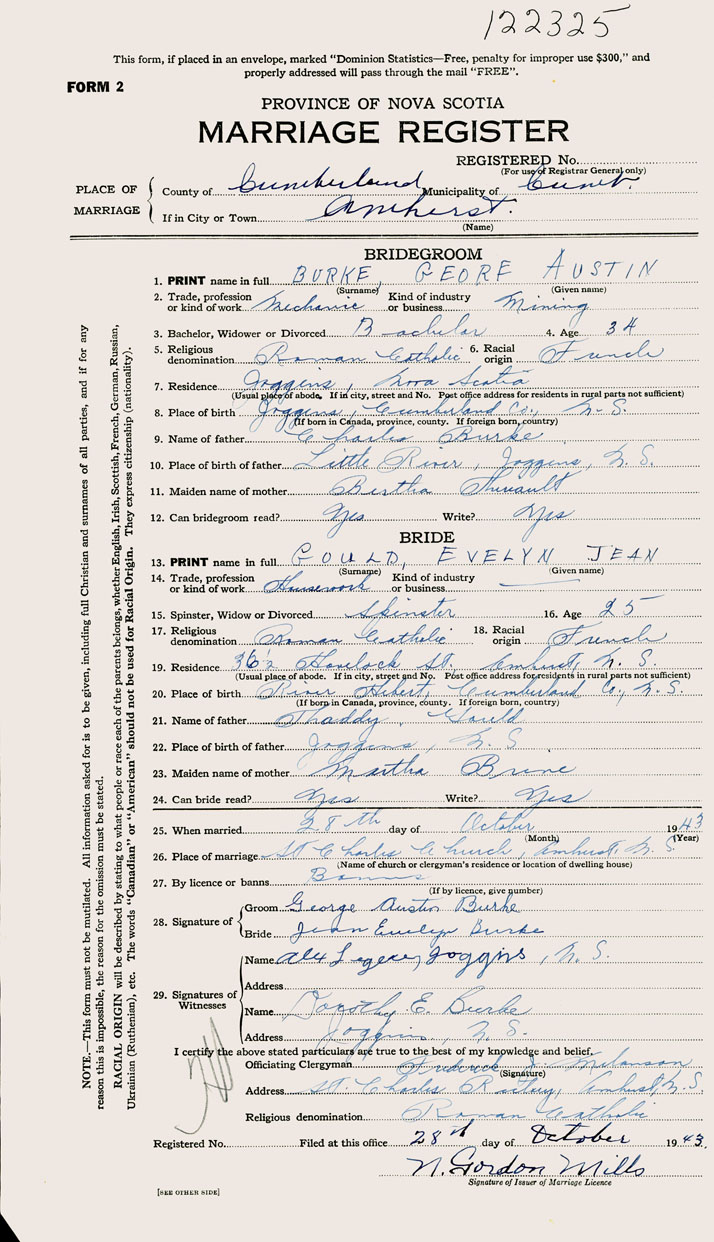 122325
This form, if placed in an envelope, marked "Dominion Statistics—Free, penalty for improper use $300," and
properly addressed will pass through the mail "FREE".
FORM 2
PROVINCE OF NOVA SCOTIA
MARRIAGE REGISTER
REGISTERED No.
(For use of Registrar General only)
PLACE OF MARRIAGE
County of Cumberland Municipality of Cumb.
If in City or Town Amherst.
(Name)
BRIDEGROOM
1. PRINT name in full BURKE, GEORF AUSTIN
(Surname) (Given name)
2. Trade, profession or kind of work Mechanic Kind of industry or business Mining
3. Bachelor, Widower or Divorced Bachelor 4. Age 34
5. Religious denomination Roman Catholic 6. Racial origin French
7. Residence Joggins, Nova Scotia
(Usual place of abode. If in city, street and No. Post office address for residents in rural parts not sufficient)
8. Place of birth Joggins, Cumberland Co., N.S.
(If born in Canada, province, county. If foreign born, country)
9. Name of father Charles Burke
10. Place of birth of father Little River, Joggins, N.S.
11. Maiden name of mother Bertha
12. Can bridegroom read? Yes Write? Yes
BRIDE
13. PRINT name in full GOULD, EVELYN JEAN
(Surname) (Given name)
14. Trade, profession or kind of work Housework Kind of industry or business
15. Spinster, Widow or Divorced Spinster 16. Age 25
17. Religious denomination Roman Catholic 18. Racial origin French
19. Residence 36 2 Havelock St. Amherst, N.S.
(Usual place of abode. If in city, street and No. Post office address for residents in rural parts not sufficient)
20. Place of birth River Hebert, Cumberland Co., N.S.
(If born in Canada, province, county. If foreign born, country)
21. Name of father Thaddy Gould
22. Place of birth of father Joggins, N.S
23. Maiden name of mother Martha Brine
24. Can bride read? Yes Write? Yes
25. When married 28th day of October 1943
(Month) (Year)
26. Place of marriage St Charles Church, Amherst, N.S.
(Name of church or clergyman's residence or location of dwelling house)
27. By licence or banns Banns
(If by licence, give number)
28. Signature of
Groom George Austin Burke
Bride Jean Evelyn Burke
29. Signatures of Witnesses
Name Alex Legere, Joggins, N.S.
Address
Name Dorothy E. Burke
Address Joggins, N.S.
I certify the above stated particulars are true to the best of my knowledge and belief.
Officiating Clergyman Frederick J. Melanson
(Signature)
Address St. Charles Rectory, Amherst, N.S.
Religious denomination Roman Catholic
Registered No. Filed at this office 28th day of October 1943.
N. Gordon Mills
Signature of Issuer of Marriage Licence
[SEE OTHER SIDE]
NOTE.—This form must not be mutilated. All information asked for is to be given, including full Christian and surnames of all parties, and if for any
reason this is impossible, the reason for the omission must be stated.
RACIAL ORIGIN will be described by stating to what people or race each of the parents belongs, whether English, Irish, Scottish, French, German, Russian,
Ukrainian (Ruthenian), etc. The words "Canadian" or "American" should not be used for Racial Origin. They express citizenship (nationality).